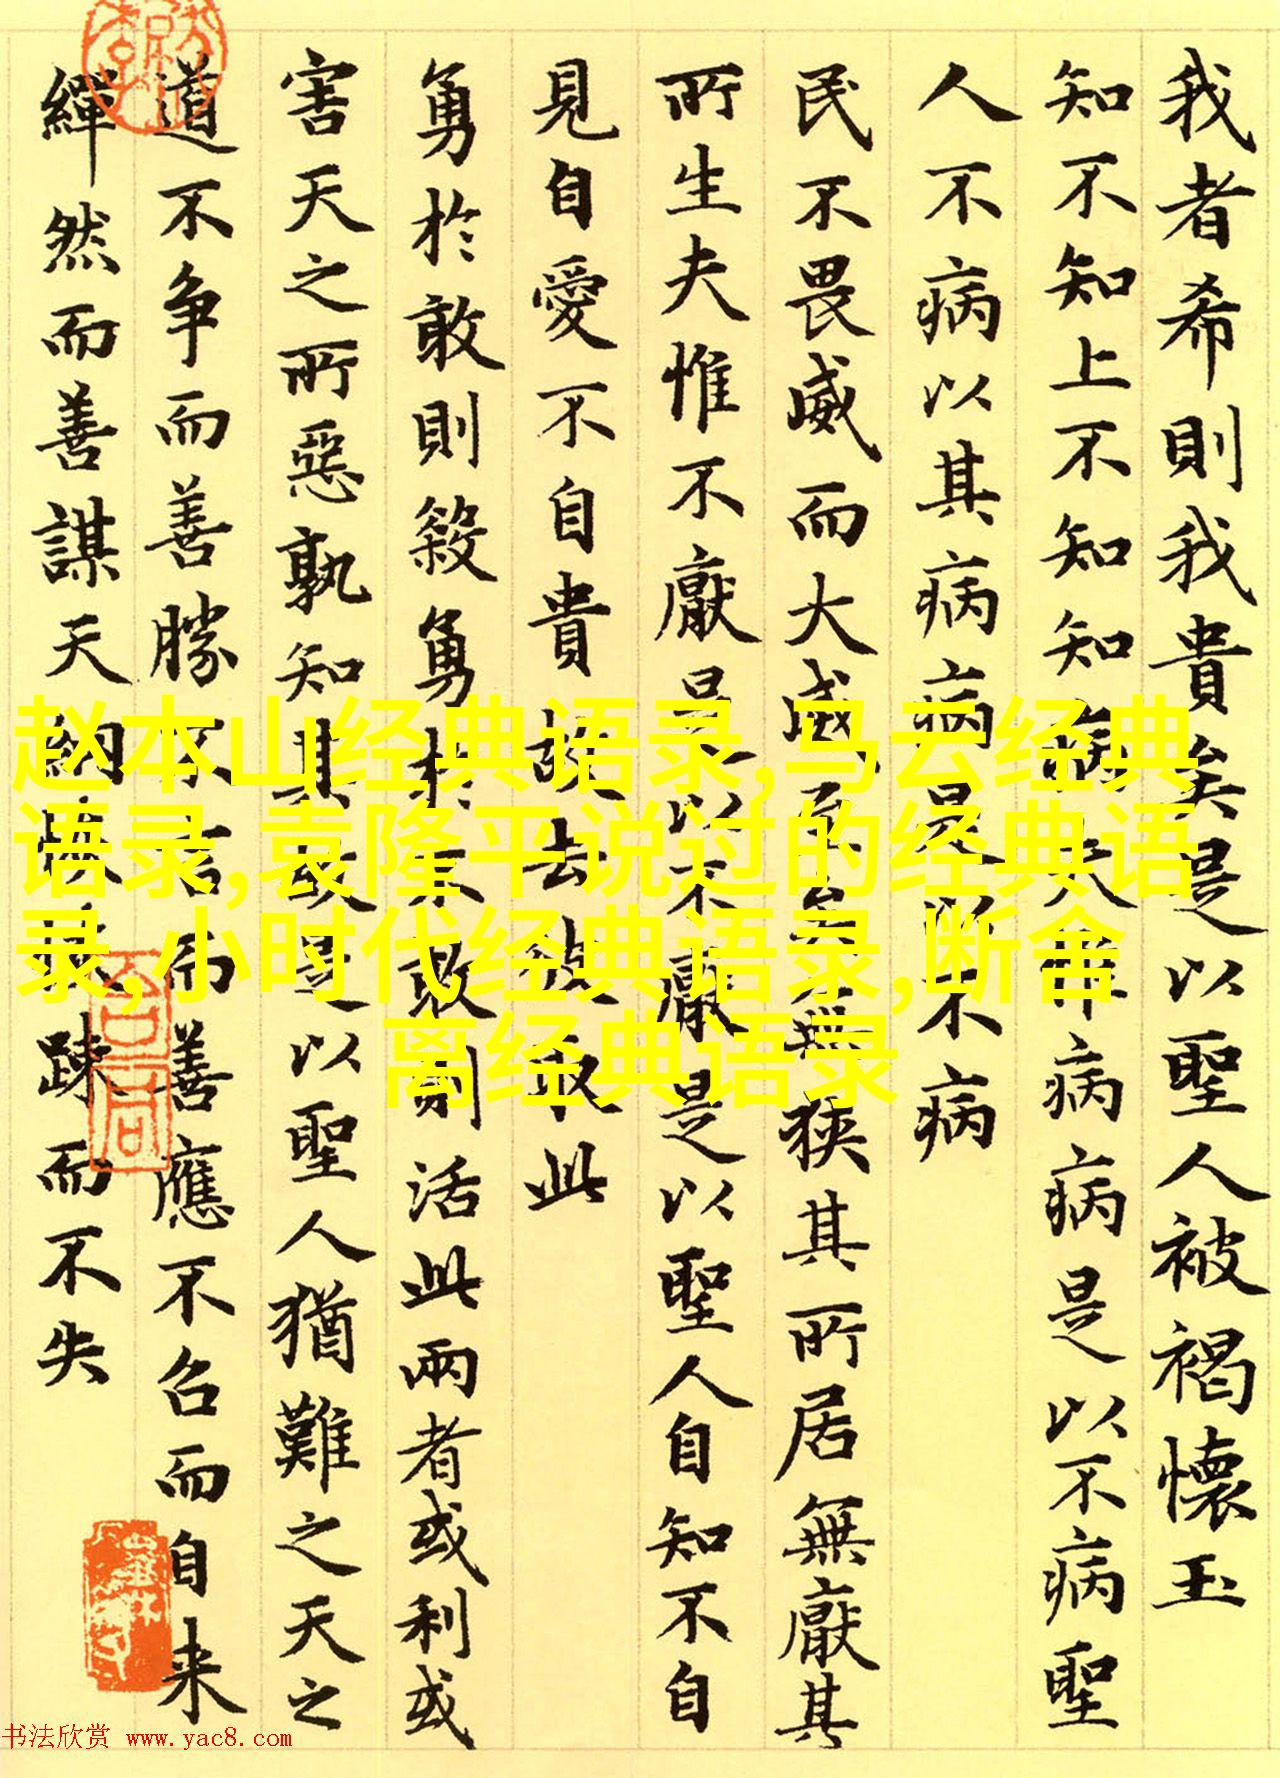 我者希則我貴矣是以聖人被褐懷玉
知不知上不知知病夫病病是以不病聖
人不病以其病病是以不病
民不畏威而大威至矣無狹其所居無厭其
所生夫惟不厭是以不厭是以聖人自知不自
見自愛不自貴故去彼取此
勇於敢則殺勇於不敢則活此兩者或利或
害天之所惡孰知其故是以聖人猶難之天之
道不争而善勝不言而善應不召而自来
繟然而善謀天網恢恢踈而不失
赵本山经典语录,马云经典
语录,袁隆平说过的经典语
录,小时代经典语录,断舍
离经典语录
书法欣赏 www.yac8.com